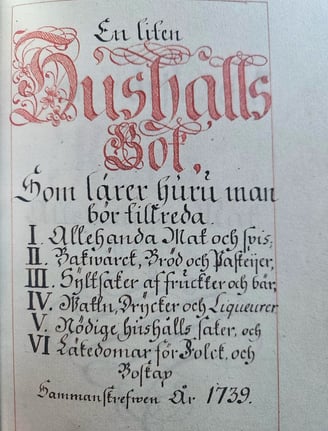 En liten
Hushålls
Bok,
Som lärer huru man
bör tillreda
I. Allehanda Mat och spis;
II. Bakwärck, Bröd och Pasteijer,
III. Syltsaker af fruckter och bär,
IV. Watn, Drycker och Liqueurer
V. Nödige hushålls saker, och
VI Läkedomar för Folck, och
Boskap
Sammanskrefwen År 1739.